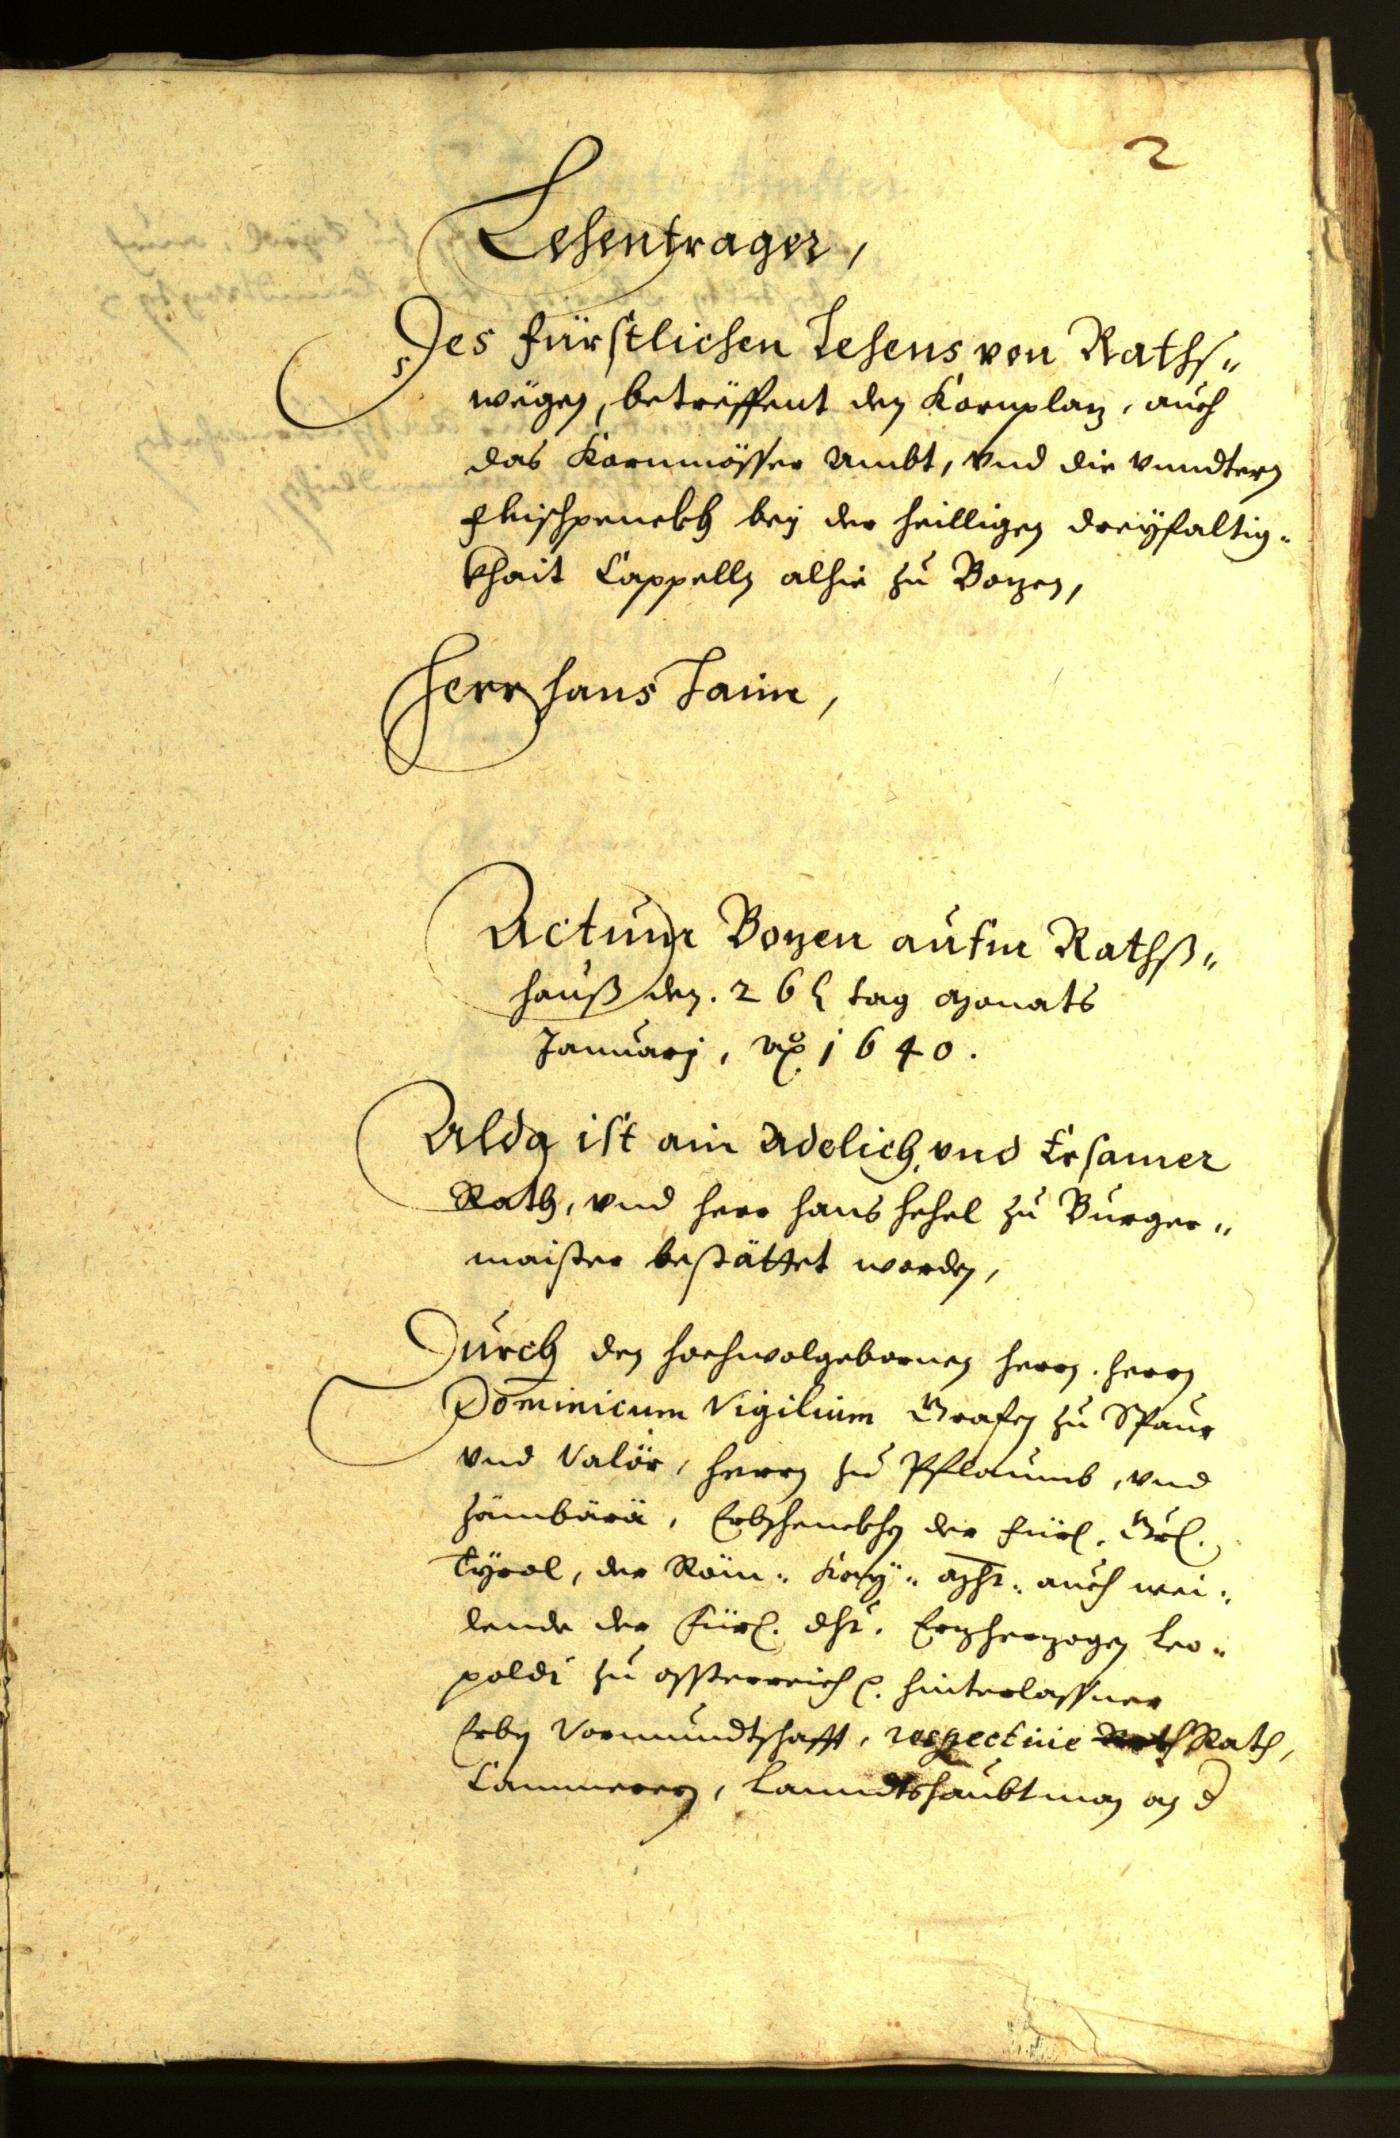 2
Lehentrager,
Des fürstlichen Lehens von Raths„
wëgen, betrëffent den Kornplaz, auch
das Kornmösser Ambt, vnd die vnndtern
fleischpenckh bey der heilligen dreyfaltig„
khait Cappelln alhie zu Bozen,
Herr Hans Jaim,
Actum Bozen aufm Rathß„
hauß den. 26ten tag Monats
Januarj, Ao. 1640.
Alda ist ain Adelich, vnd Ersamer
Rath, vnd herr Hans Hehel zu Burger„
maister bestättet worden,
Durch den hochwolgebornen herrn. herrn
Dominicum Vigilium Grafen zu Spaur
vnd Valör, herrn zu Pflaumb, vnd
Zämbärä, Erbschenckhen der fürl. Grl.
Tyrol, der Röm„ Kay„ Mht„ auch wei„
lende der Fürl. dht. Erzherzogen Leo„
poldi zu össterreich etc. hinterlassner
Erben Vormundtschafft, respective Rath Rath,
Cammerern, Lanndtshaubtman an d